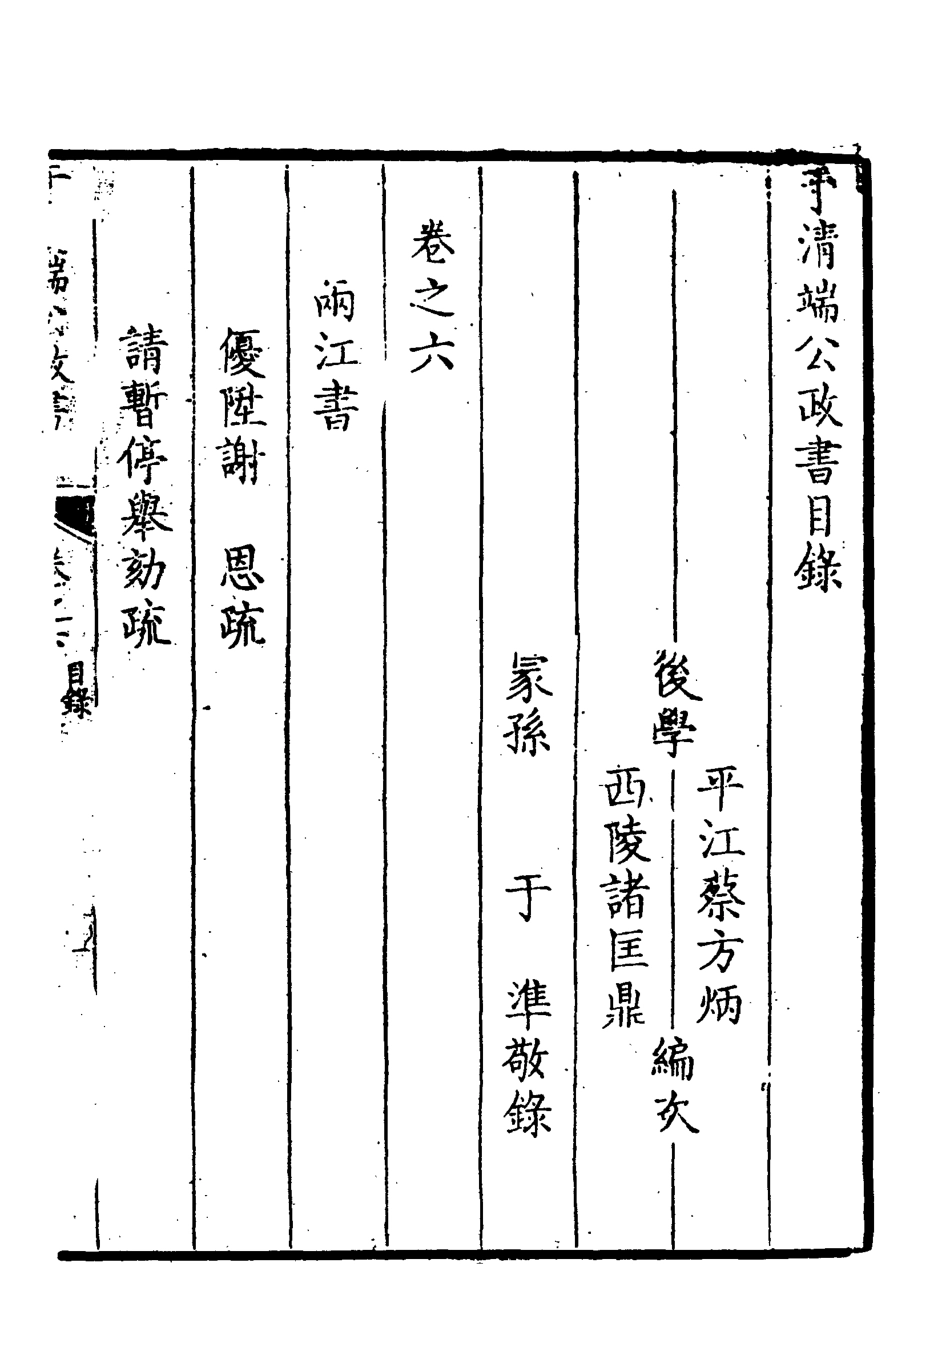 于清端公政書目錄
後學
平江蔡方炳
西陵諸匡鼎
編次
冡孫　于　準敬錄
卷之六
兩江書
優陞謝　恩疏
請暫停舉劾疏
目錄